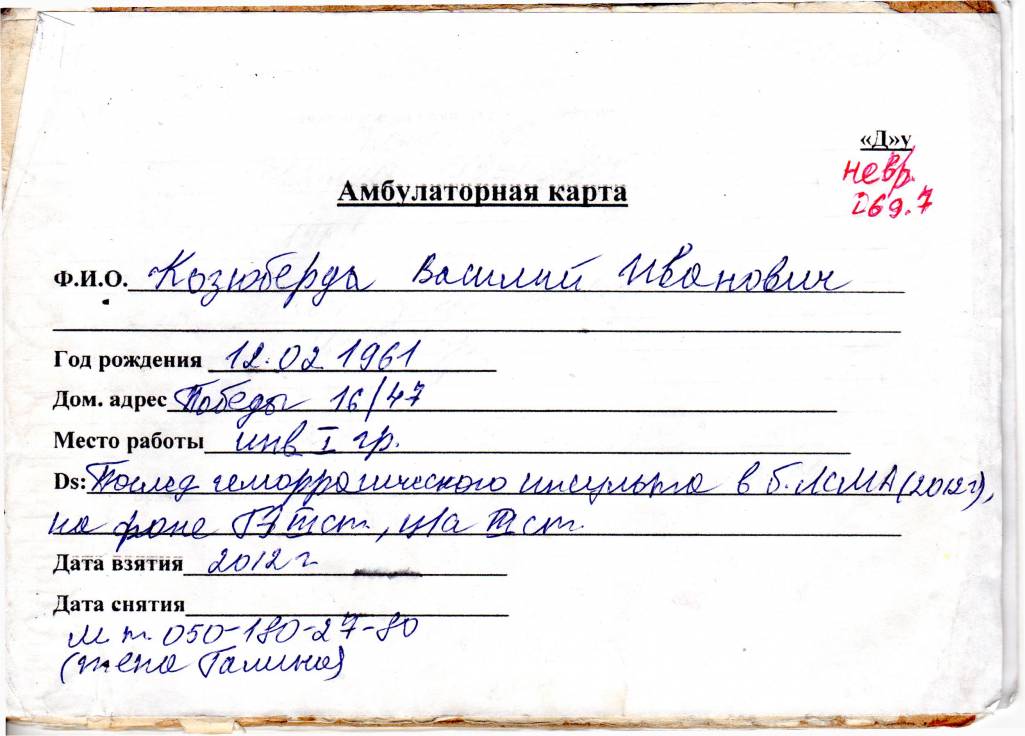 «Д»у
невр.
I69.7
Амбулаторная карта
Ф.И.О. Козюберда Василий Иванович
Год рождения 12.02 1961
Дом. адрес Победы 16/47
Место работы инв I гр.
Ds: Послед геморрагического инсульта в б. ЛСМА (2012г),
на фоне ГЭ III ст, ц/а III ст.
Дата взятия 2012 г
Дата снятия
м.т. 050-180-27-80
(жена Галина)